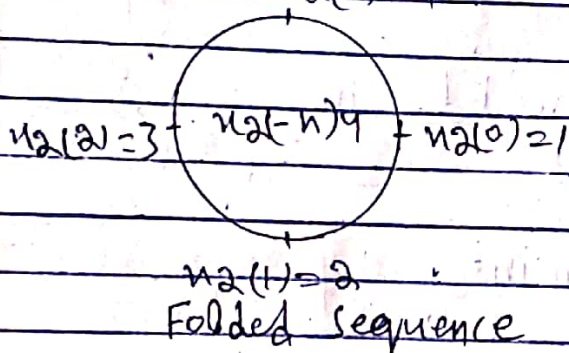 x2(2)=3
x2(-n)4
x2(0)=1
x2(1)=2
Folded Sequence